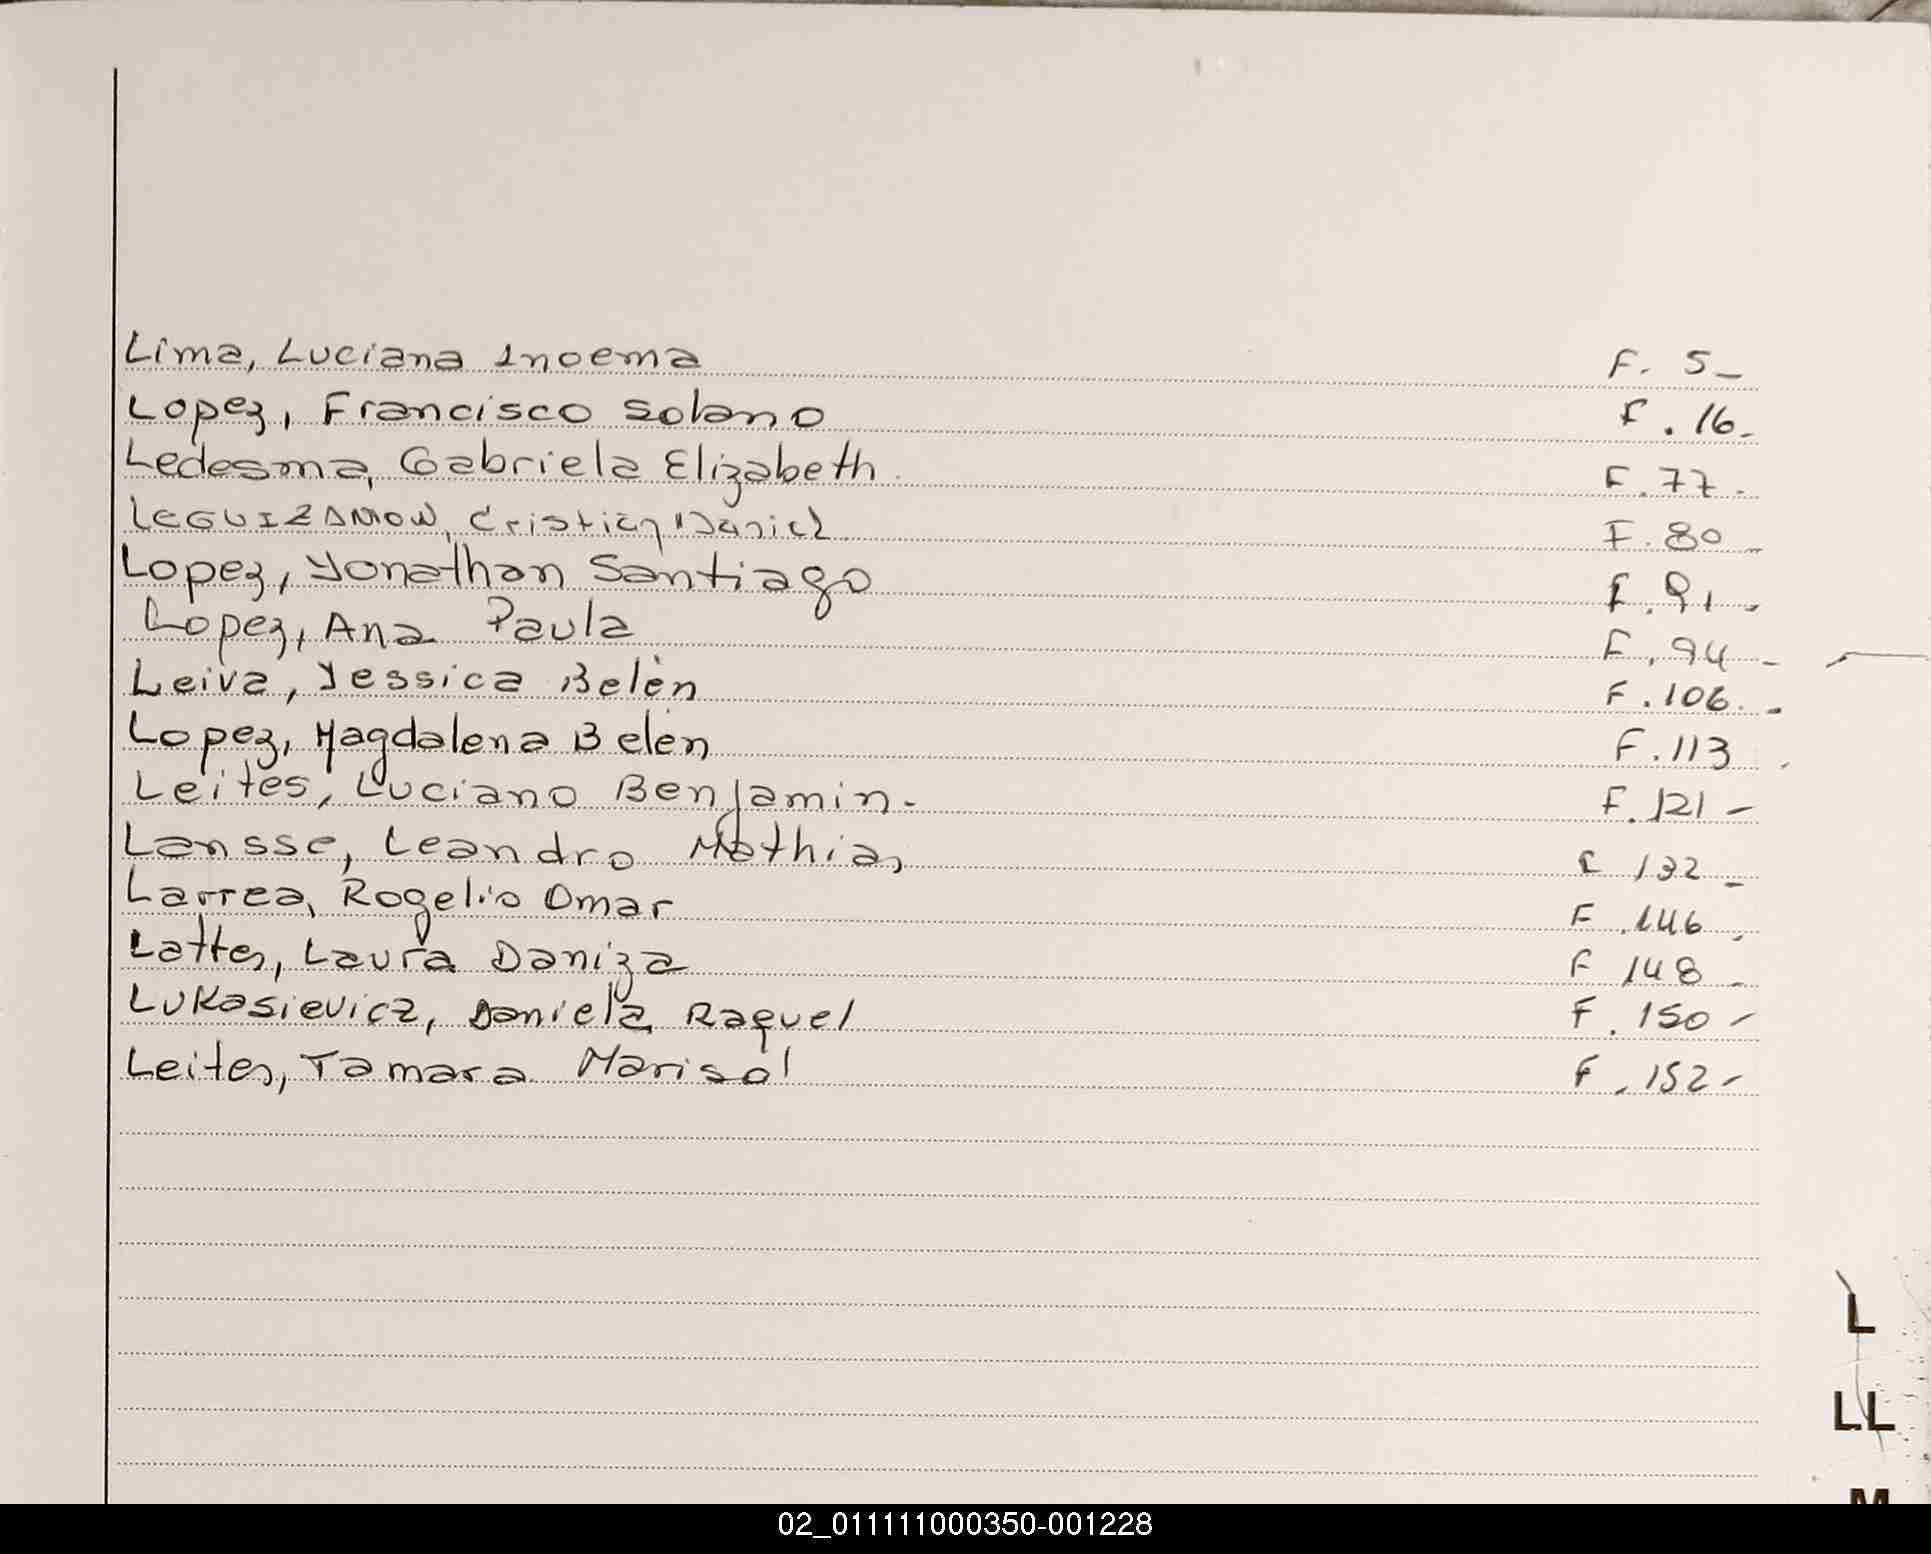 Lima, Luciana Inoema F. 5_
Lopez, Francisco Solano F. 16_
Ledesma, Gabriela Elizabeth. F. 77.
LEGUIZAMON, Cristian Daniel F. 80_
Lopez, Yonathan Santiago F. 91.
Lopez, Ana Paula F. 94_
Leiva, Yessica Belén F. 106.
Lopez, Magdalena Belén F. 113.
Leites, Luciano Benjamin.- F. 121-
Lansse, Leandro Mathias F 132_
Larrea, Rogelio Omar F. 146.
Lattes, Laura Daniza F 148_
Lukasievicz, Daniela Raquel F. 150-
Leites, Tamara Marisol F. 152-
L
LL
M
02_011111000350-001228